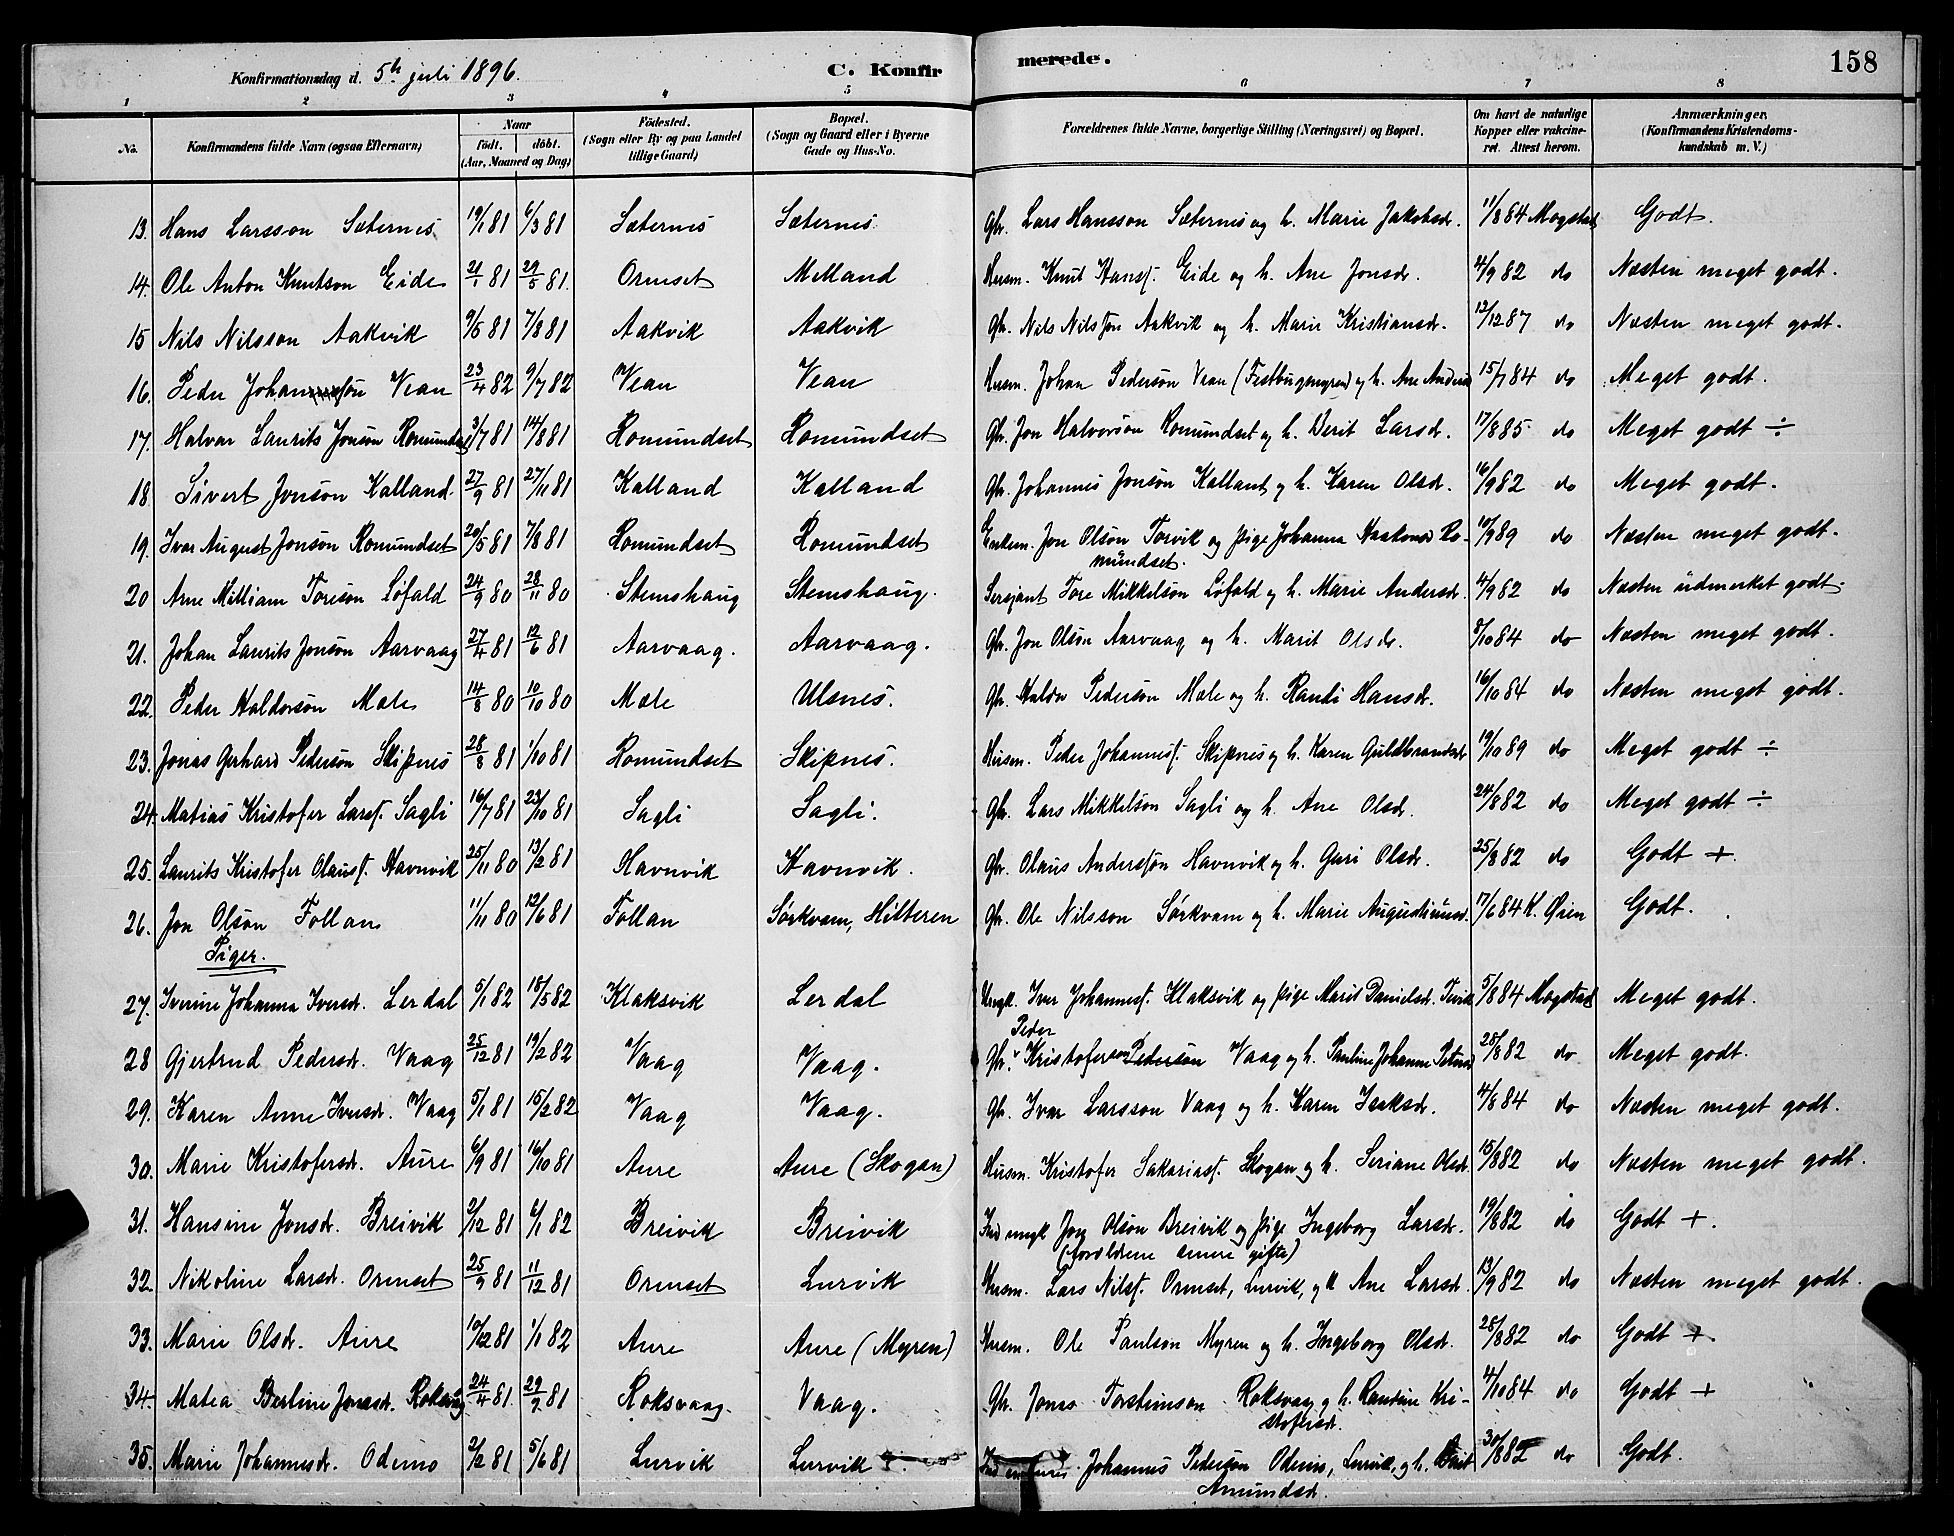 Konfirmationsdag d. 5te juli 1896. C. Konfirmerede. 158
1 2 3 4 5 6 7 8
No. Konfirmandens fulde Navn (ogsaa Efternavn) Naar født. døbt. (Aar, Maaned og Dag) Födested. (Sogn eller By og paa Landet tillige Gaard) Bopæl. (Sogn og Gaard eller i Byerne Gade og Hus-No. Forældrenes fulde Navne, borgerlige Stilling (Næringsvei) og Bopæl. Om havt de naturlige Kopper eller vakcineret. Attest herom. Anmærkninger. (Konfirmandens Kristendomskundskab m. V.)
13. Hans Larsson Sæternes 19/1 81 6/3 81 Sæternes Sæternes. Gbr. Lars Hansson Sæternes og h. Marie Jakobsd. 11/8 84 Mogstad Godt.
14. Ole Anton Knutson Eide 21/1 81 29/5 81. Ormset Melland Husm. Knut Hansf. Eide og h. Ane Jonsdr. 4/9 82 do Næsten meget godt.
15 Nils Nilsson Aakvik 9/5 81 7/8 81 Aakvik Aakvik Gbr. Nils Nilsson Aakvik og h. Marie Kristiansdr. 12/12 87 do Næsten meget godt.
16. Peder Johansön Vean 23/4 82 9/7 82 Vean Vean Husm. Johan Pederson Vean og h. Ane Andersd 15/7 84 do Meget godt.
17. Halvar Laurits Jonsön Romundset 3/7 81 14/8 81 Romundset Romundset Gbr. Jon Halvorsön Romundset og h. Berit Larsdr. 17/8 85 do Meget godt ÷
18 Sivert Jonsön Kalland. 27/9 81 27/11 81 Kalland Kalland Gbr. Johannes Jonsön Kalland og h. Karen Olsdr. 16/9 82 do Meget godt.
19. Ivar August Jonsön Romundset 20/5 81 7/8 81 Romundset Romundset Enkem. Jon Olsön Torvik og pige Johanna Haakonsd Ro-
mundset. 10/9 89 do Næsten meget godt.
20 Arne Milliam Toreson Löfald 24/9 80 28/11 80 Stemshaug Stemshaug. Sersjant Tore Mikkelson Löfald og h. Marie Andersdr. 4/9 82 do Næsten üdmerket godt.
21. Johan Laurits Jonsön Aarvaag 27/4 81 12/6 81 Aarvaag. Aarvaag. Gbr. Jon Olsön Aarvaag og h. Marit Olsdr. 8/10 84 do Næsten meget godt.
22. Peder Haldorsön Mæle 14/8 80 10/10 80 Mæle Ulsnes. Gbr. Haldor Pederson Mæle og h. Randi Hansdr. 16/10 84 do Næsten meget godt.
23. Jonas Gerhard Pederson Skipnes 28/8 81 1/10 81 Romundset Skipnes. Husm. Peder Johannesf. Skipnes og h. Karen Guldbrandsd 19/10 89 do Meget godt ÷
24. Matias Kristofer Larsf. Sagli 16/7 81 23/10 81 Sagli Sagli. Gbr. Lars Mikkelson Sagli og h. Ane Olsdr. 24/8 82 do Meget godt ÷
25. Laurits Kristofer Olausf. Havnvik 25/11 80 13/2 81 Havnvik Havnvik. Gbr. Olaus Andersson Havnvik og h. Guri Olsdr. 25/8 82 do Godt +
26. Jon Olsön Follan 11/11 80 12/6 81 Follan Sørkvam, Hitteren Gbr. Ole Nilsson Sørkvam og h. Marie Augustinusd. 17/6 84 K. Øien Godt.
Piger.
27. Iverine Johanna Iversdr. Lerdal 5/1 82 18/5 82 Klaksvik Lerdal Ungk. Iver Johannesf. Klaksvik og pige Marit Danielsdr. 5/8 84 Mogstad Meget godt.
28 Gjertrud Pedersdr. Vaag 25/12 81 19/2 82 Vaag Vaag. Gbr. Peder Kristoferson Pederson Vaag og h. Pauline Johanne 28/8 82 do Meget godt.
29. Karen Anne Iversdr. Vaag 5/1 81 15/2 82 Vaag Vaag. Gbr. Ivar Larsson Vaag og h. Karen Isaksdr. 4/8 84 do Næsten meget godt.
30. Marie Kristofersdr. Aure 6/9 81 16/10 81 Aure Aure (Skogan) Husm. Kristofer Sakariasf. Skogan og h. Seriane Olsdr. 15/8 82 do Næsten meget godt.
31. Hansine Jonsdr. Breivik 2/12 81 6/1 82 Breivik Breivik Ind ungk Jon Olsön Breivik og pige Ingeborg Larsdr.
(forældrene senere gifte) 19/8 82 do Godt +.
32. Nikoline Larsdr. Ormset 25/9 81 11/12 81 Ormset Lurvik Husm. Lars Nilsf. Ormset, Lurvik, og h Ane Larsd. 13/9 82 do Næsten meget godt.
33. Marie Olsdr. Aure 10/12 81 1/1 82 Aure Aure (Myren) Husm. Ole Paulson Myren og h. Ingeborg Olsdr. 28/8 82 do Godt +
34. Matea Berline Jonasdr. Roksvåg 24/4 81 29/9 81 Roksvaag. Vaag. Gbr. Jonas Torsteinson Roksvaag og h. Randine Kri-
stofersdr. 4/10 84 do Godt +
35. Marie Johannesdr. Ödenes 2/2 81 5/6 81 Lurvik Lurvik Johannes Pederson Lurvik, og h. Berit
Amundsd. 30/8 82 do Godt.